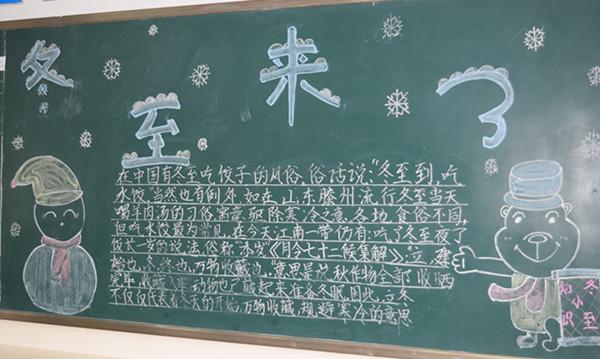 冬至来了
在中国有冬至吃饺子的风俗。俗话说:"冬至到,吃
水饺"当然也有例外,如在山东滕州流行冬至当天
喝羊肉汤的习俗,寓意驱除寒冷之意。各地食俗不同,
但吃水饺最为常见。在今天江南一带仍有吃了冬至夜
饭长一岁的说法,俗称《月令七十二候集解》
冬,终也,万物收藏也。意思是说秋作物全部收
收藏 动物也 藏起来准备冬眠。因此,立冬
不仅仅代表着冬天的 万物收藏,规避寒冷的意思
冬至
小知识